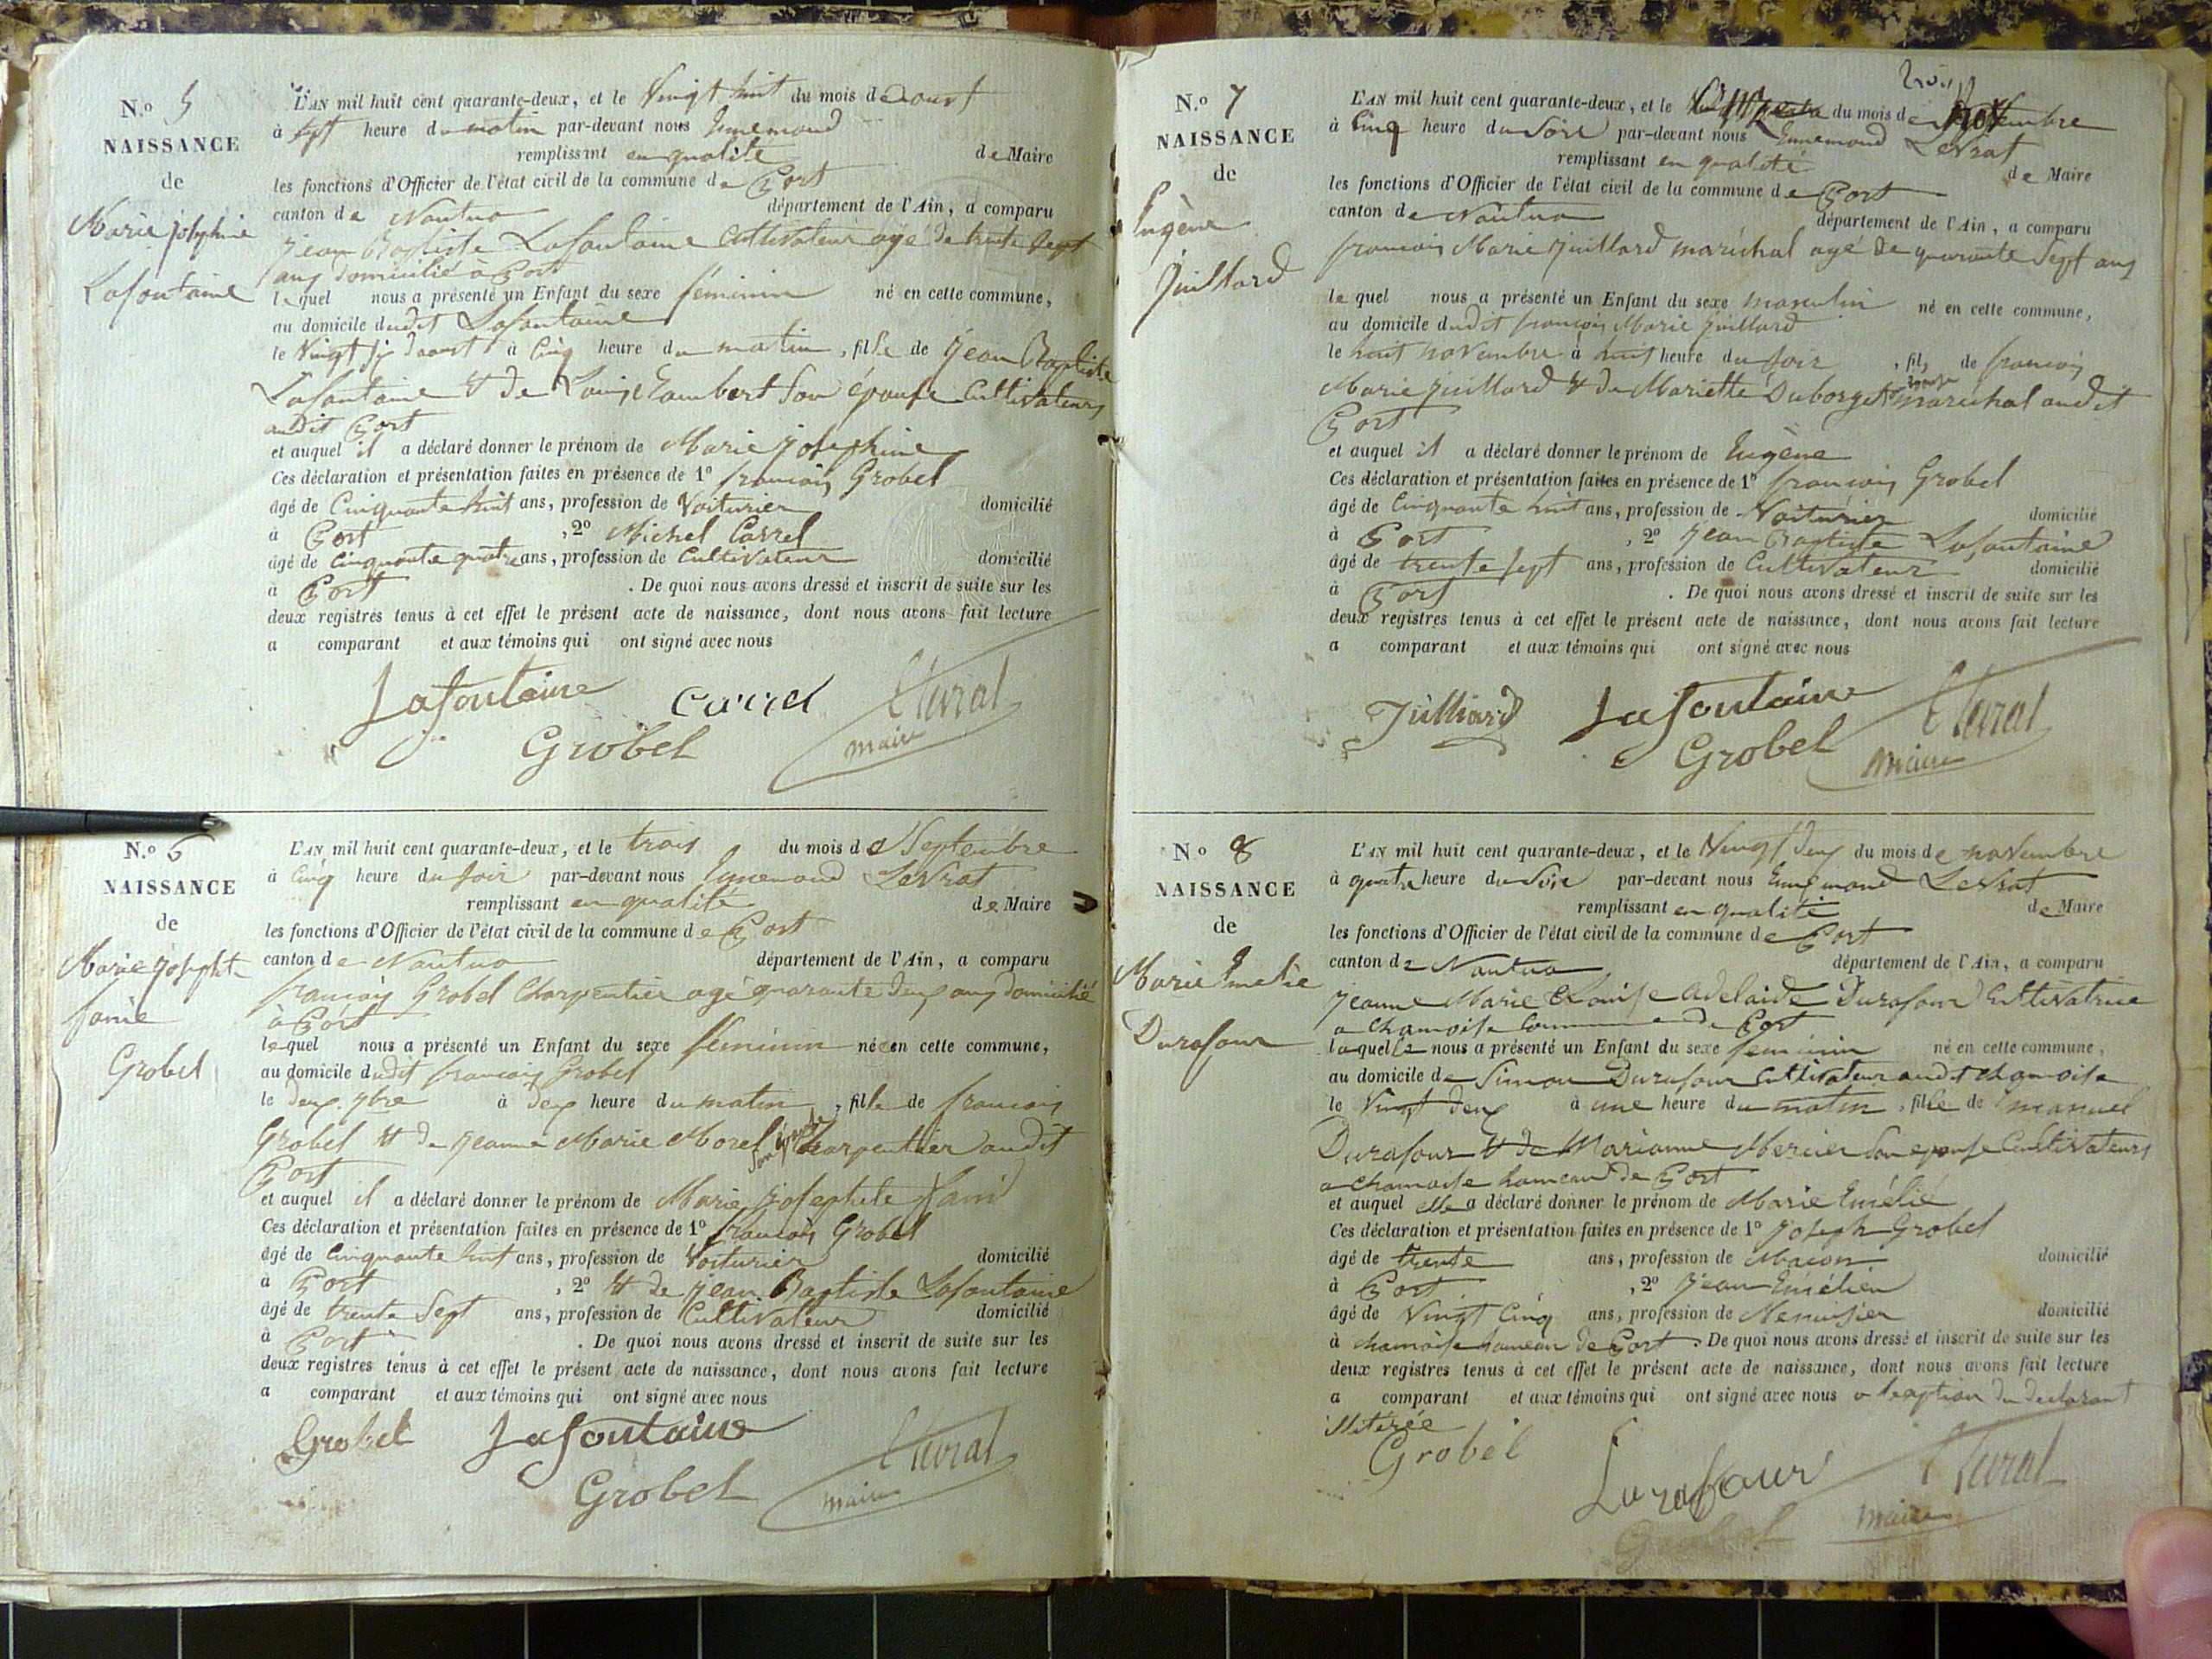 N.o 5
NAISSANCE
de
Marie joséphine
Lafontaine
L'AN mil huit cent quarante-deux, et le Vingt huit du mois d'aoust
à sept heure du matin par-devant nous Ennemond
remplissant en qualité de Maire
les fonctions d'Officier de l'état civil de la commune de Port
canton de Nantua département de l'Ain, a comparu
jean Baptiste Lafontaine Cultivateur agé de trente sept
ans domicilié à Port
lequel nous a présenté un Enfant du sexe féminin né en cette commune,
au domicile dudit Lafontaine
le Vingt six daoust à Cinq heure du matin, fille de jean Baptiste
Lafontaine & de Louise Lambert Son épouse Cultivateurs
audit Port
et auquel il a déclaré donner le prénom de Marie josephine
Ces déclaration et présentation faites en présence de 1o françois Grobel
âgé de Cinquante huit ans, profession de Voiturier domicilié
à Port, 2o Michel Carrel
âgé de Cinquante quatre ans, profession de Cultivateur domicilié
à Port. De quoi nous avons dressé et inscrit de suite sur les
deux registres tenus à cet effet le présent acte de naissance, dont nous avons fait lecture
a comparant et aux témoins qui ont signé avec nous
Lafontaine Carrel Levrat
Grobel maire
N.o 6
NAISSANCE
de
Marie josepht
fanie
Grobel
L'AN mil huit cent quarante-deux, et le trois du mois de Septembre
à Cinq heure du soir par-devant nous Ennemond LeVrat
remplissant en qualité de Maire
les fonctions d'Officier de l'état civil de la commune de Port
canton de Nantua département de l'Ain, a comparu
françois Grobel Charpentier agé quarante deux ans domicilié
à Port
lequel nous a présenté un Enfant du sexe féminin né en cette commune,
au domicile dudit françois Grobel
le deux 7bre à deux heure du matin, fille de françois
Grobel & de jeanne Marie Morel son épouse Charpentier audit
Port
et auquel il a déclaré donner le prénom de Marie josephte fanié
Ces déclaration et présentation faites en présence de 1o françois Grobel
âgé de Cinquante huit ans, profession de Voiturier domicilié
à Port, 2o & de jean Baptiste Lafontaine
âgé de trente Sept ans, profession de Cultivateur domicilié
à Port. De quoi nous avons dressé et inscrit de suite sur les
deux registres tenus à cet effet le présent acte de naissance, dont nous avons fait lecture
a comparant et aux témoins qui ont signé avec nous
Grobel Lafontaine Levrat
Grobel maire
N.o 7
NAISSANCE
de
Eugène
juillard
L'AN mil huit cent quarante-deux, et le du mois de novembre
à Cinq heure du Soir par-devant nous Ennemond LeVrat
remplissant en qualité de Maire
les fonctions d'Officier de l'état civil de la commune de Port
canton de Nantua département de l'Ain, a comparu
françois Marie juillard maréchal agé de quarante Sept ans
le quel nous a présenté un Enfant du sexe masculin né en cette commune,
au domicile dudit françois Marie juillard
le huit novembre à huit heure du soir, fils de françois
Marie juillard & de Mariette Duborget épouse maréchal audit
Port
et auquel il a déclaré donner le prénom de Eugène
Ces déclaration et présentation faites en présence de 1o françois Grobel
âgé de Cinquante huit ans, profession de Voiturier domicilié
à Port, 2o jean Baptiste Lafontaine
âgé de trente sept ans, profession de Cultivateur domicilié
à Port. De quoi nous avons dressé et inscrit de suite sur les
deux registres tenus à cet effet le présent acte de naissance, dont nous avons fait lecture
a comparant et aux témoins qui ont signé avec nous
Juilliard Lafontaine Levrat
Grobel maire
No 8
NAISSANCE
de
Marie Emelie
Durafour
L'AN mil huit cent quarante-deux, et le Vingt deux du mois de novembre
à quatre heure du Soir par-devant nous Ennemond LeVrat
remplissant en qualité de Maire
les fonctions d'Officier de l'état civil de la commune de Port
canton de Nantua département de l'Ain, a comparu
jeanne Marie Louise adelaide Durafour Cultivatrice
a chamoise Commune de Port
laquelle nous a présenté un Enfant du sexe feminin né en cette commune,
au domicile de Simon Durafour Cultivateur audit chamoise
le Vingt deux à une heure du matin, fille de Emanuel
Durafour & de Marianne Mercier Son epouse Cultivateurs
a chamoise hameau de Port
et auquel elle a déclaré donner le prénom de Marie Emélié
Ces déclaration et présentation faites en présence de 1o joseph Grobel
âgé de trente ans, profession de Macon domicilié
à Port, 2o jean Emélien
âgé de Vingt Cinq ans, profession de Menuisier domicilié
à chamoise hameau de Port. De quoi nous avons dressé et inscrit de suite sur les
deux registres tenus à cet effet le présent acte de naissance, dont nous avons fait lecture
a comparant et aux témoins qui ont signé avec nous a lexeption du declarant
illetérée
Grobel Durafour Levrat
maire